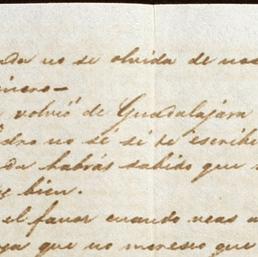 no se olvida de nos
volvió de Guadalajara
no sé si te escribi
habrás sabido que
bien.
el favor cuando veas a
que no meresco que